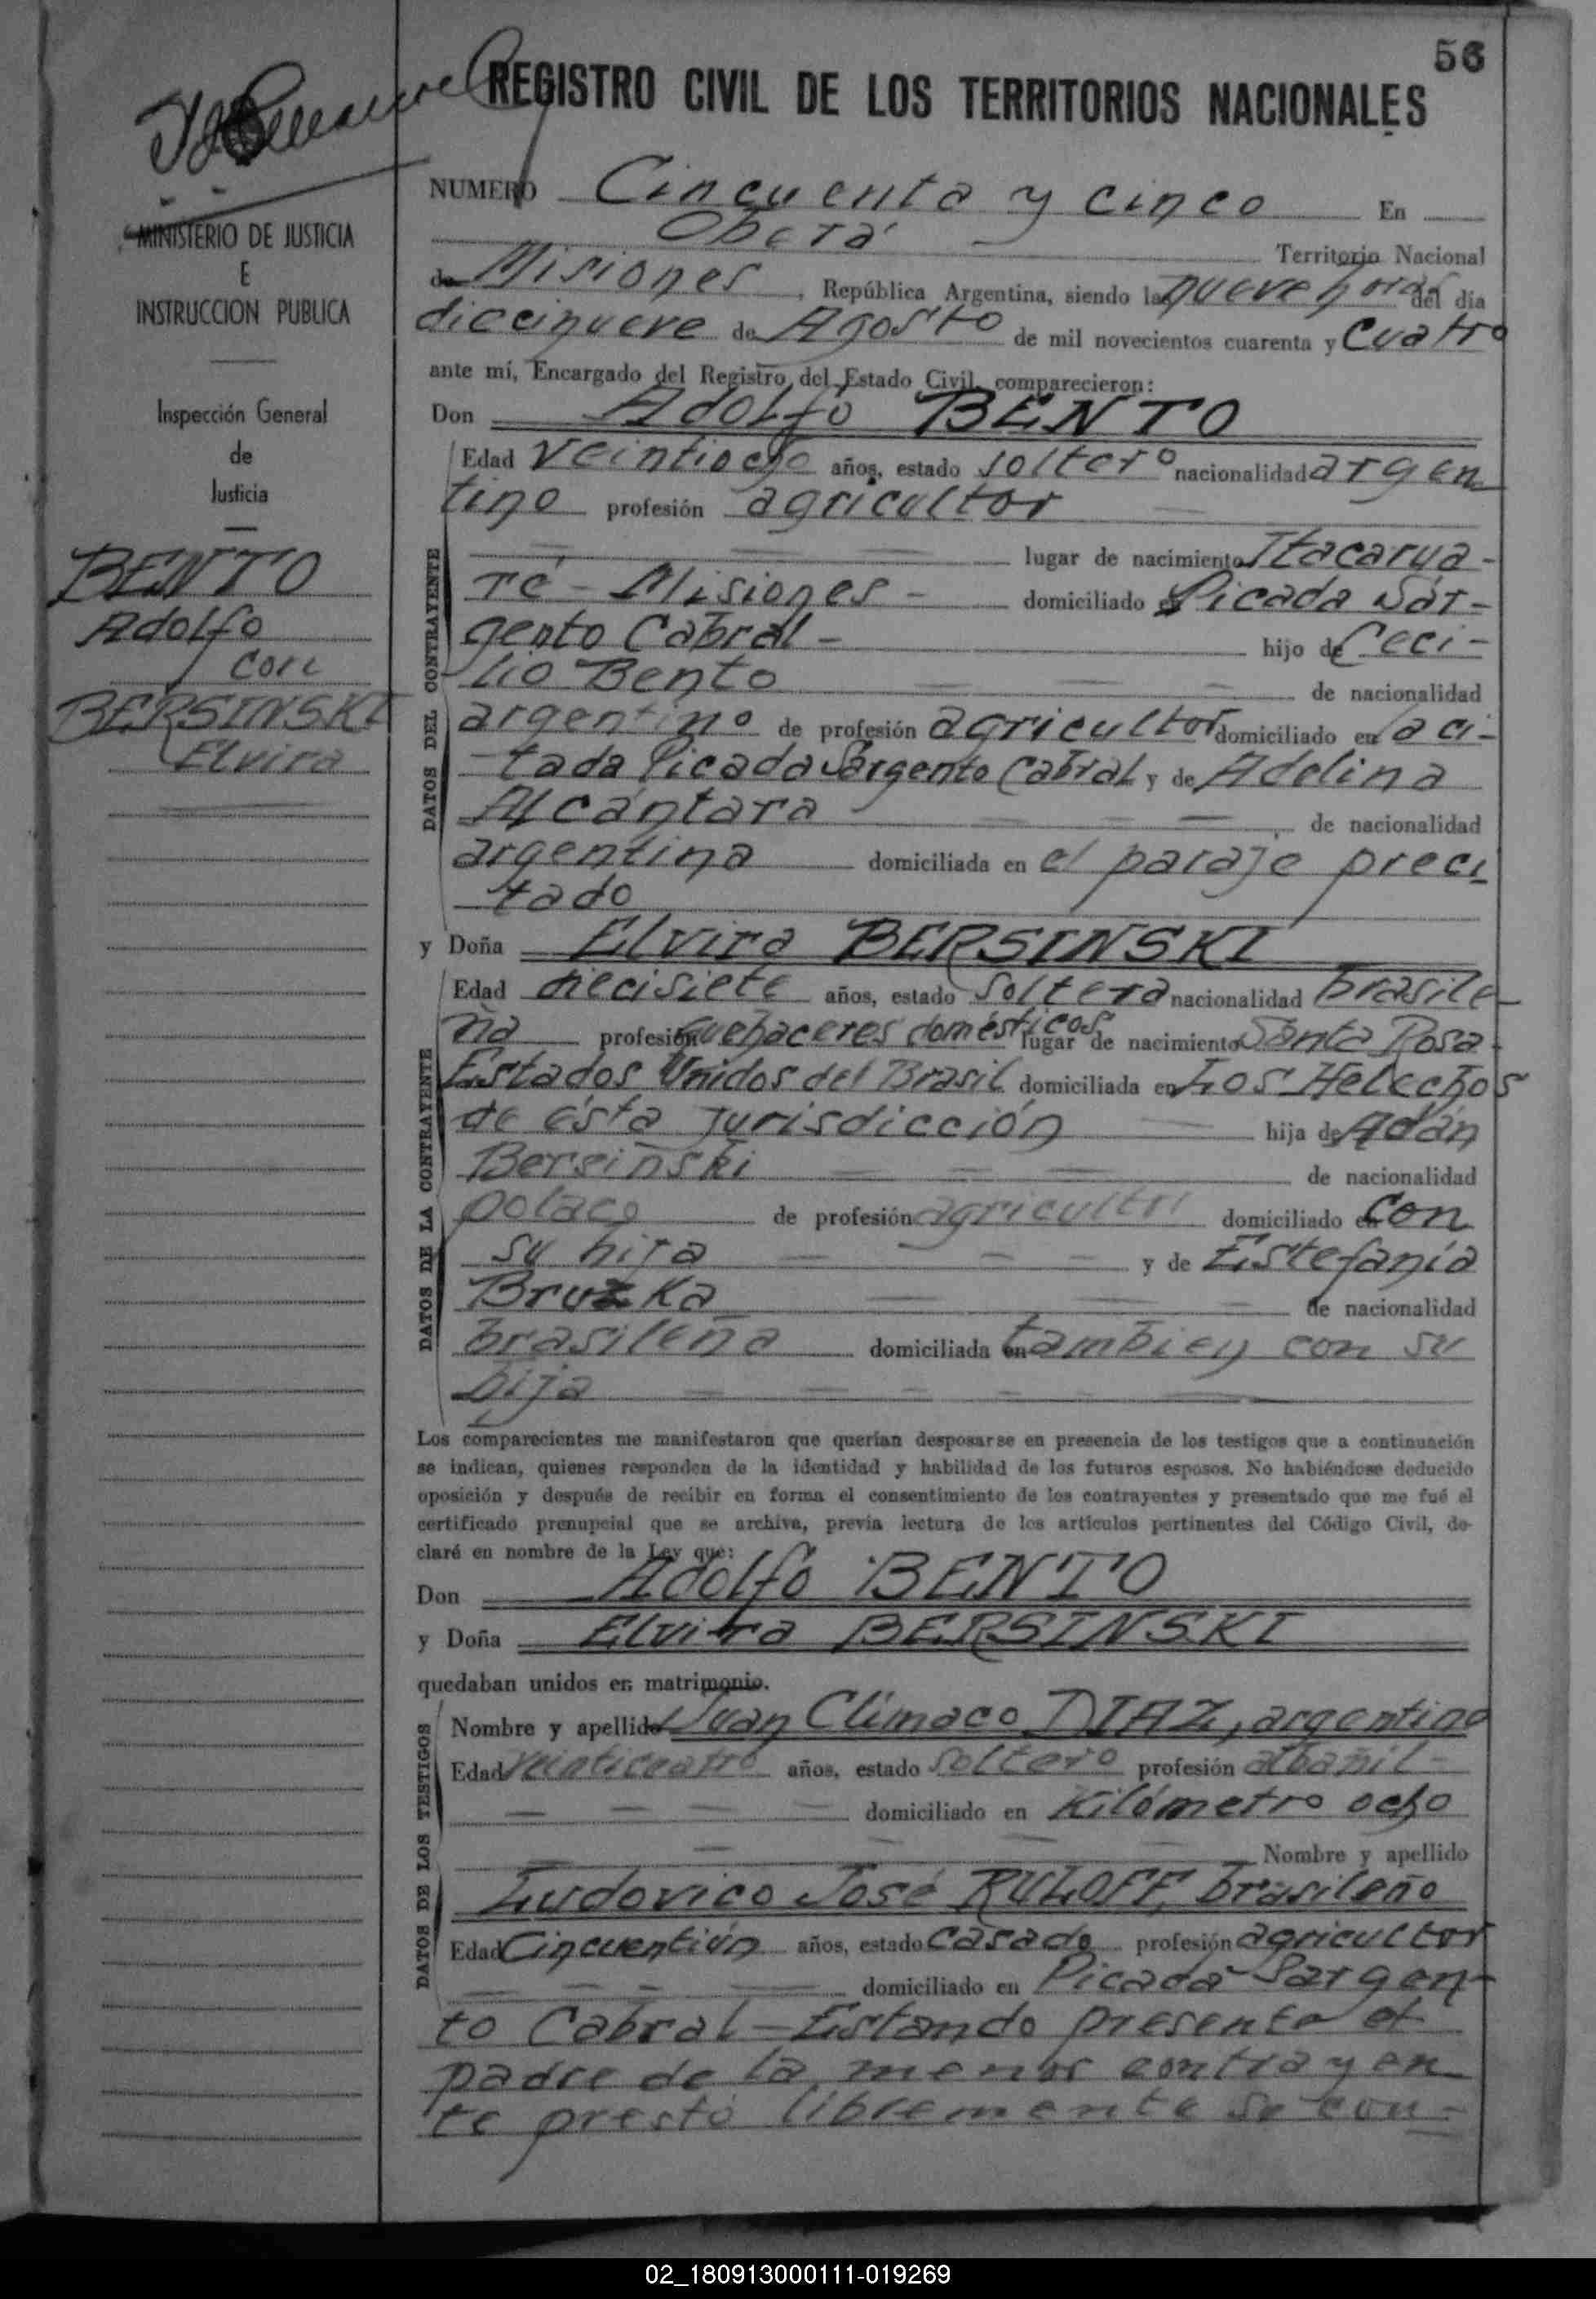 56
REGISTRO CIVIL DE LOS TERRITORIOS NACIONALES
MINISTERIO DE JUSTICIA
E
INSTRUCCION PUBLICA
Inspección General
de
Justicia
BENTO
Adolfo
con
BERSINSKI
Elvira
NUMERO Cincuenta y cinco En
Oberá Territorio Nacional
de Misiones, República Argentina, siendo las nueve horas del día
diecinueve de Agosto de mil novecientos cuarenta y cuatro
ante mí, Encargado del Registro del Estado Civil, comparecieron:
Don Adolfo BENTO
DATOS DEL CONTRAYENTE
Edad veintiocho años, estado soltero nacionalidad argen
tino profesión agricultor
lugar de nacimiento Itacarua-
ré - Misiones - domiciliado en Picada Sar-
gento Cabral - hijo de Ceci-
lio Bento de nacionalidad
argentino de profesión agricultor domiciliado en la ci-
tada Picada Sargento Cabral y de Adelina
Alcántara de nacionalidad
argentina domiciliada en el paraje preci
tado
y Doña Elvira BERSINSKI
DATOS DE LA CONTRAYENTE
Edad diecisiete años, estado soltera nacionalidad brasile
ña profesión quehaceres domésticos lugar de nacimiento Santa Rosa
Estados Unidos del Brasil domiciliada en Los Helechos
de ésta jurisdicción hija de Adán
Bersinski de nacionalidad
polaco de profesión agricultor domiciliado en con
su hija y de Estefanía
Bruzka de nacionalidad
brasileña domiciliada en tambien con su
hija
Los comparecientes me manifestaron que querían desposarse en presencia de los testigos que a continuación
se indican, quienes responden de la identidad y habilidad de los futuros esposos. No habiéndose deducido
oposición y después de recibir en forma el consentimiento de los contrayentes y presentado que me fué el
certificado prenupcial que se archiva, previa lectura de los artículos pertinentes del Código Civil, de-
claré en nombre de la Ley que:
Don Adolfo BENTO
y Doña Elvira BERSINSKI
quedaban unidos en matrimonio.
DATOS DE LOS TESTIGOS
Nombre y apellido Juan Clímaco DIAZ, argentino
Edad veinticuatro años, estado soltero profesión albañil-
domiciliado en Kilómetro ocho
Nombre y apellido
Ludovico José RULOFF, brasileño
Edad Cincuentiún años, estado casado profesión agricultor
domiciliado en Picada Sargen-
to Cabral - Estando presente el
padre de la menor contrayen
te prestó libremente su con-
02_180913000111-019269